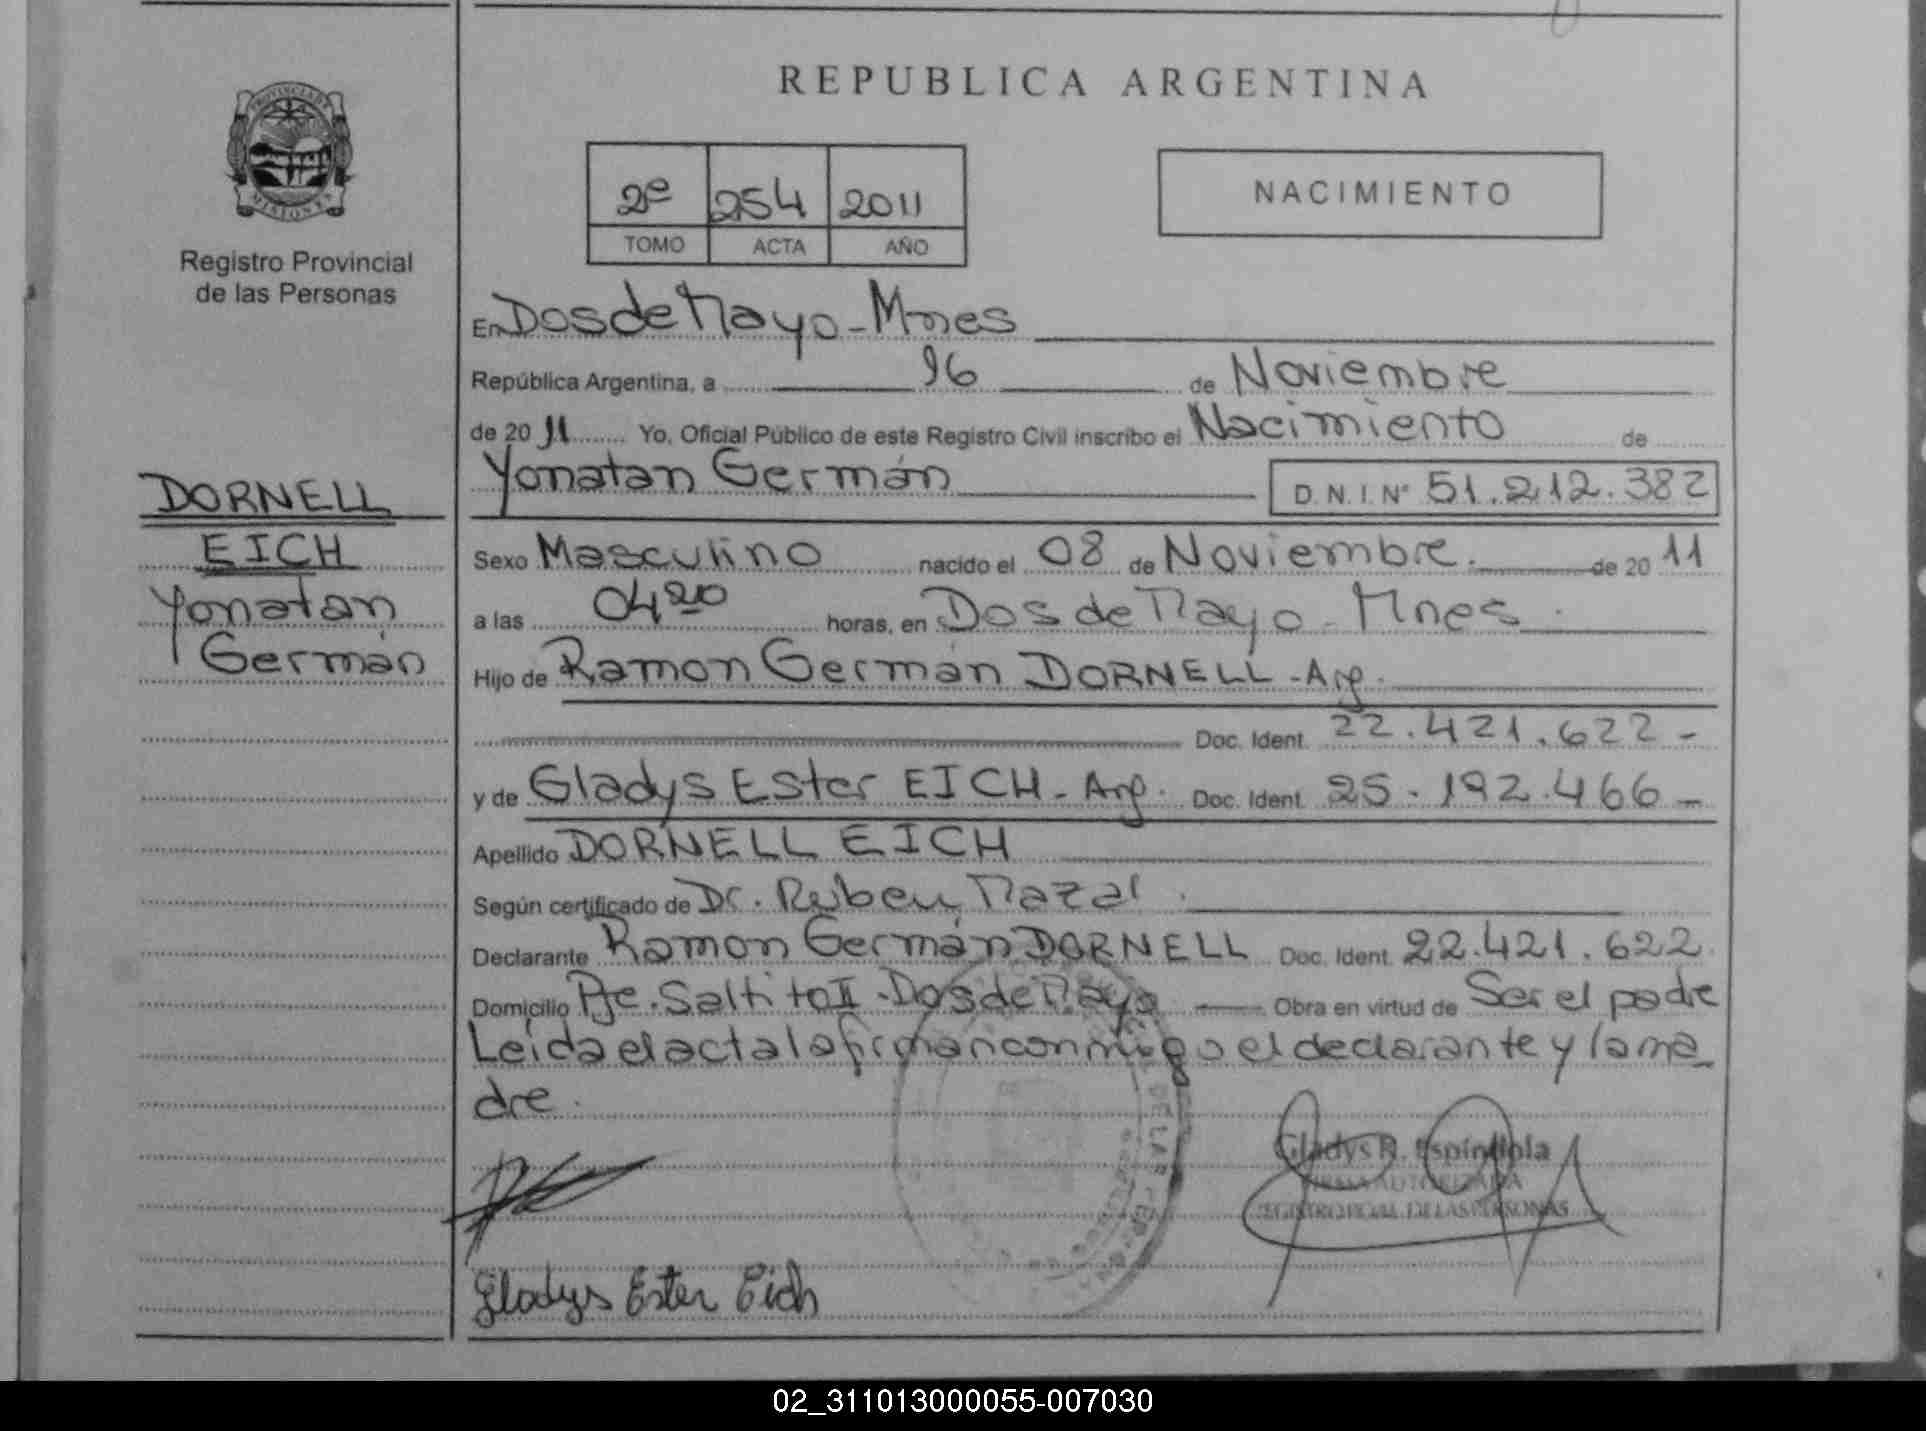 REPUBLICA ARGENTINA
PROVINCIA DE
MISIONES
Registro Provincial
de las Personas
2º 254 2011
TOMO ACTA AÑO
NACIMIENTO
En Dos de Mayo - Mnes
República Argentina, a 16 de Noviembre
de 2011 Yo, Oficial Público de este Registro Civil inscribo el Nacimiento de
Yonatan Germán D.N.I. Nº 51.212.382
DORNELL
EICH
Yonatan
Germán
Sexo Masculino nacido el 08 de Noviembre. de 2011
a las 04 20 horas, en Dos de Mayo - Mnes.
Hijo de Ramon Germán DORNELL - Arg.
Doc. Ident. 22.421.622 -
y de Gladys Ester EICH - Arg. Doc. Ident. 25.192.466 -
Apellido DORNELL EICH
Según certificado de Dr. Ruben Mazal.
Declarante Ramon Germán DORNELL Doc. Ident. 22.421.622.
Domicilio Pje. Saltito II - Dos de Mayo Obra en virtud de Ser el padre
Leida el acta la firman conmigo el declarante y la ma
dre.
Gladys R. Espindola
FIRMA AUTORIZADA
REGISTRO PCIAL. DE LAS PERSONAS
Gladys Ester Eich
02_311013000055-007030